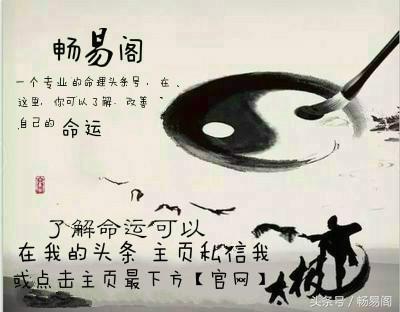 畅易阁
一个专业的命理头条号,在
这里,你可以了解.改善
自己的 命运
了解命运可以
在我的头条 主页私信我
或点击主页最下方【官网】
太极
头条号 / 畅易阁